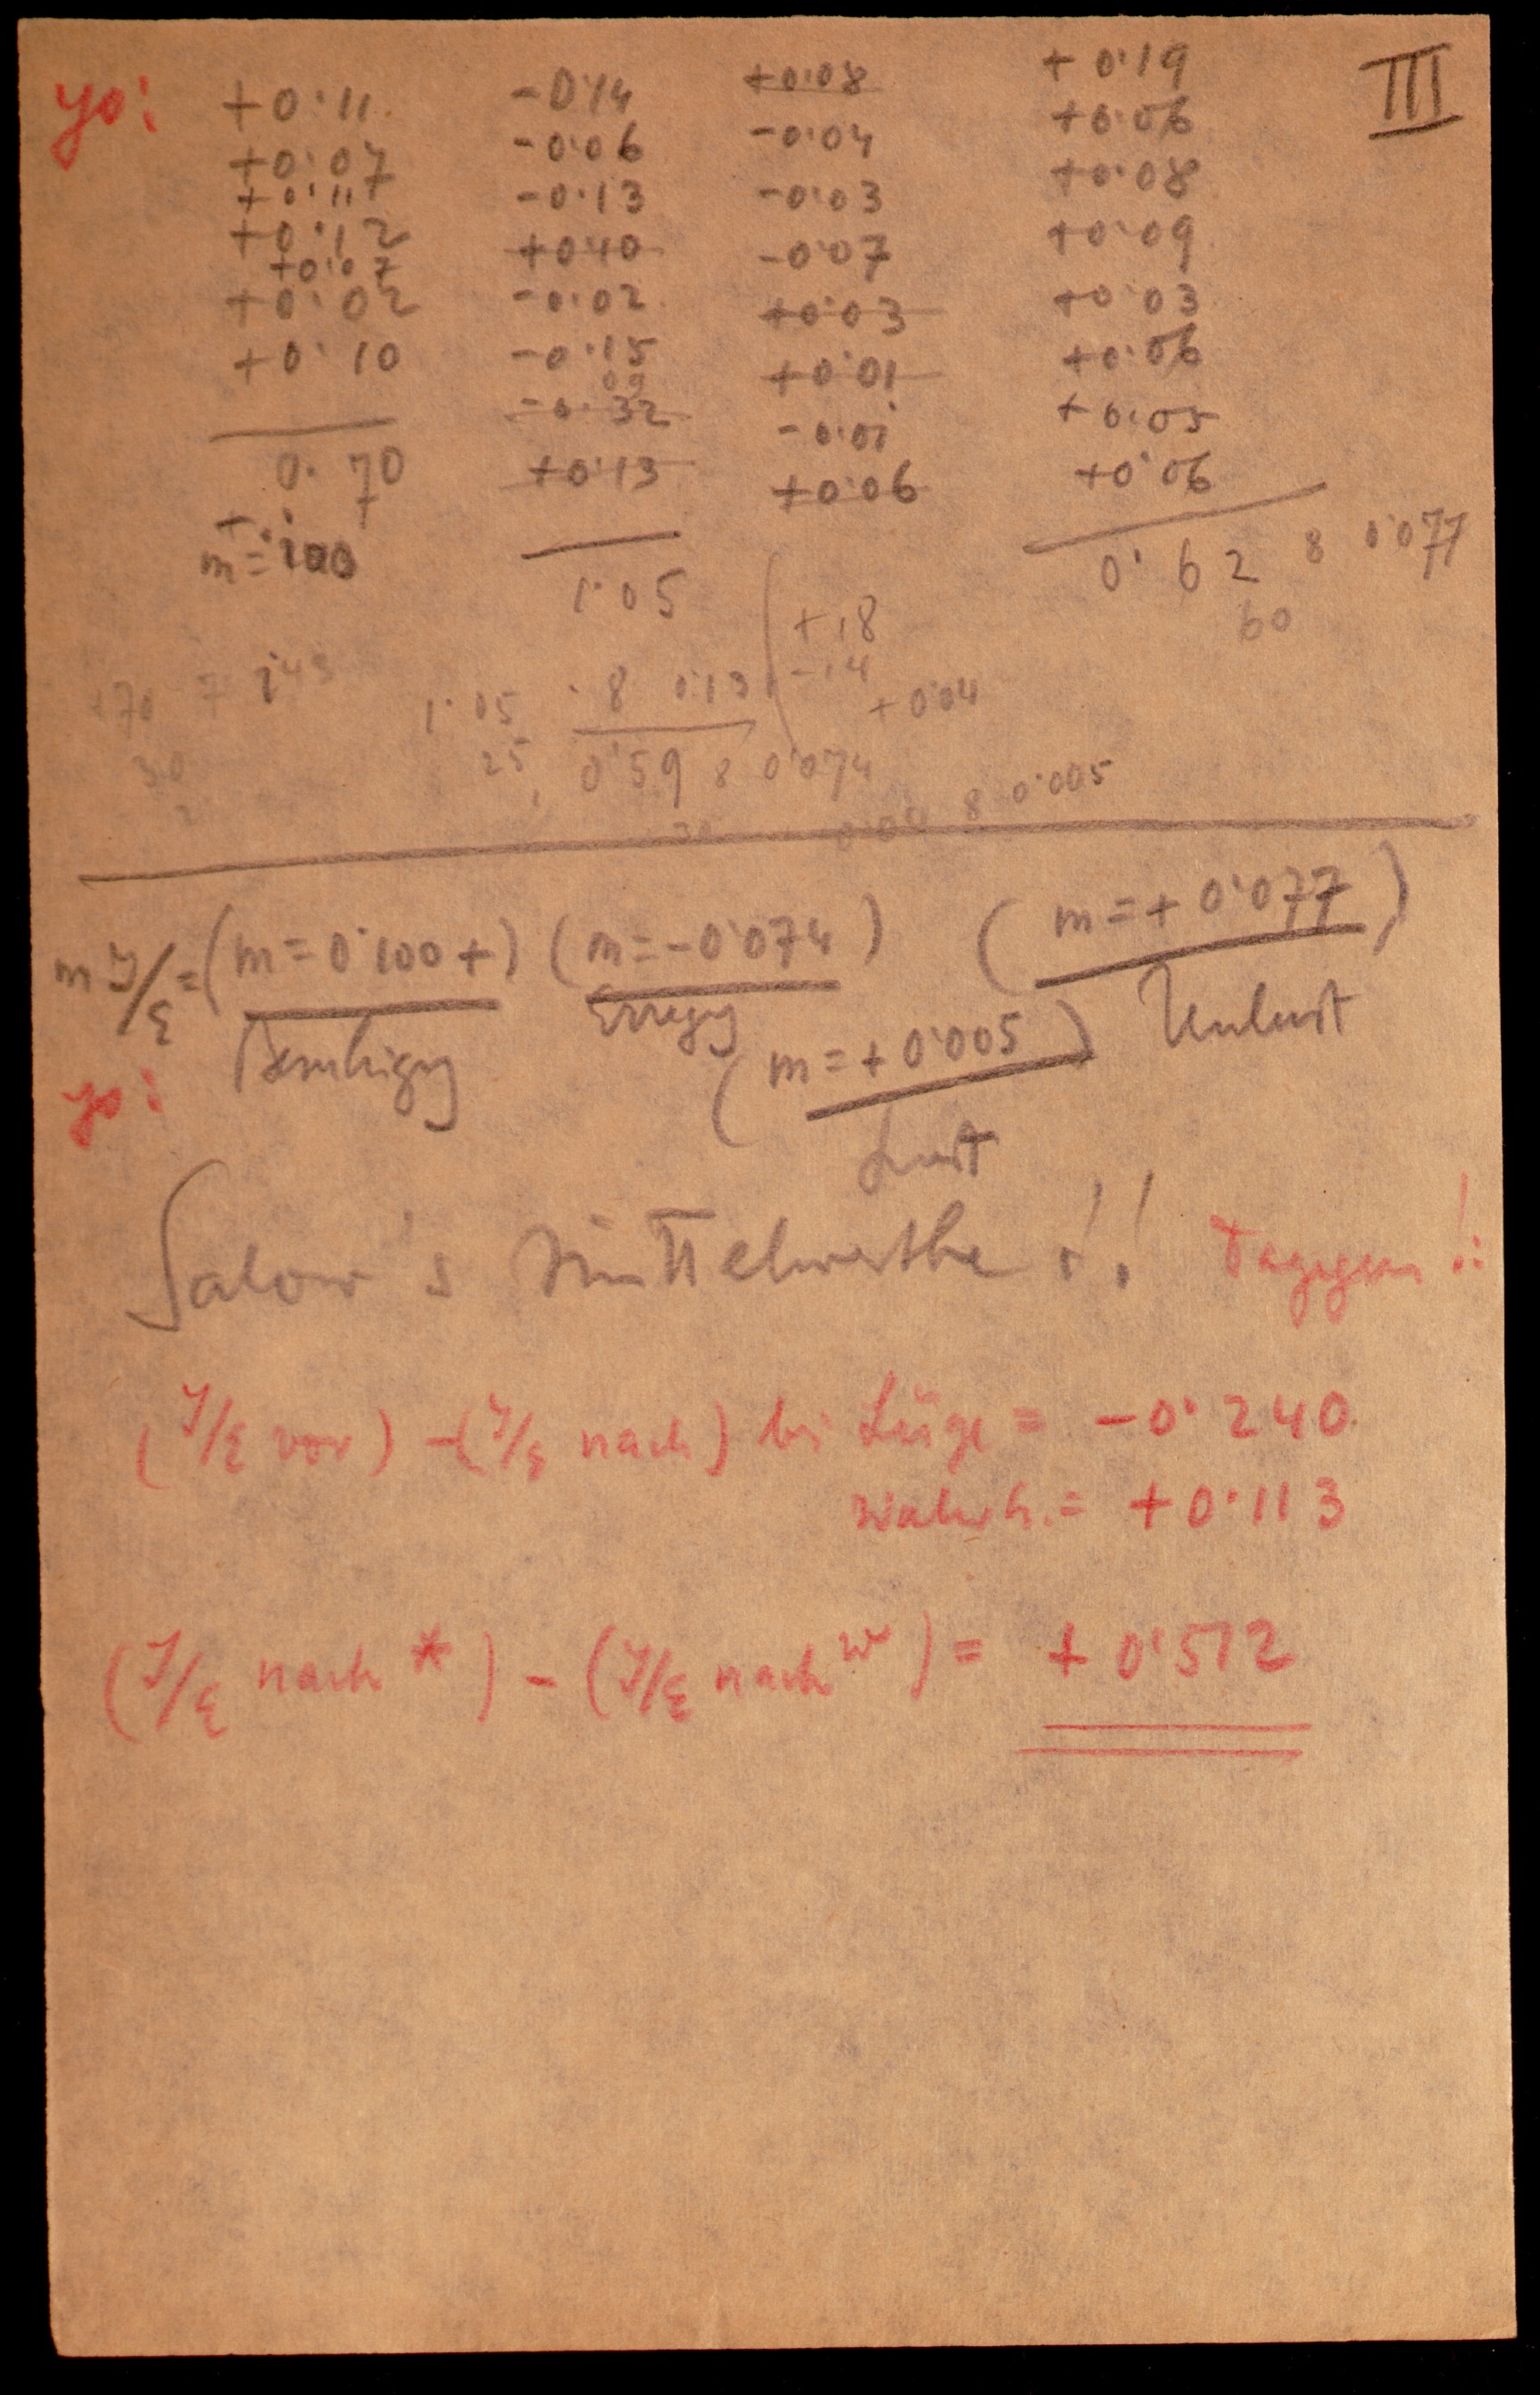 yo: +0·11 -0·14 +0·08 +0·19 III
+0·07 -0·06 -0·04 +0·06
+0·11 -0·13 -0·03 +0·08
+0·12 +0·40 -0·07 +0·09
+0·07
+0·02 -0·02 +0·03 +0·03
+0·10 -0·15 +0·01 +0·06
09
-0·32 -0·01 +0·05
0·70 +0·13 +0·06 +0·06
+
m=·100 1·05 0·62 8 0·077
60
+18
-14
+70 7 1·05 8 0·13 +0·04
30 25 0·59 8 0·074
30 0·04 8 0·005
m J/E = (m=0·100+) (m=-0·074) (m=+0·077)
Beruhigg Erregg Unlust
yo: (m=+0·005)
Lust
Salow's Mittelwerthe!! Dagegen!:
(J/E vor) - (J/E nach) bei Lüge = -0·240
Wahrh. = +0·113
(J/E nach *) - (J/E nach w) = +0·512